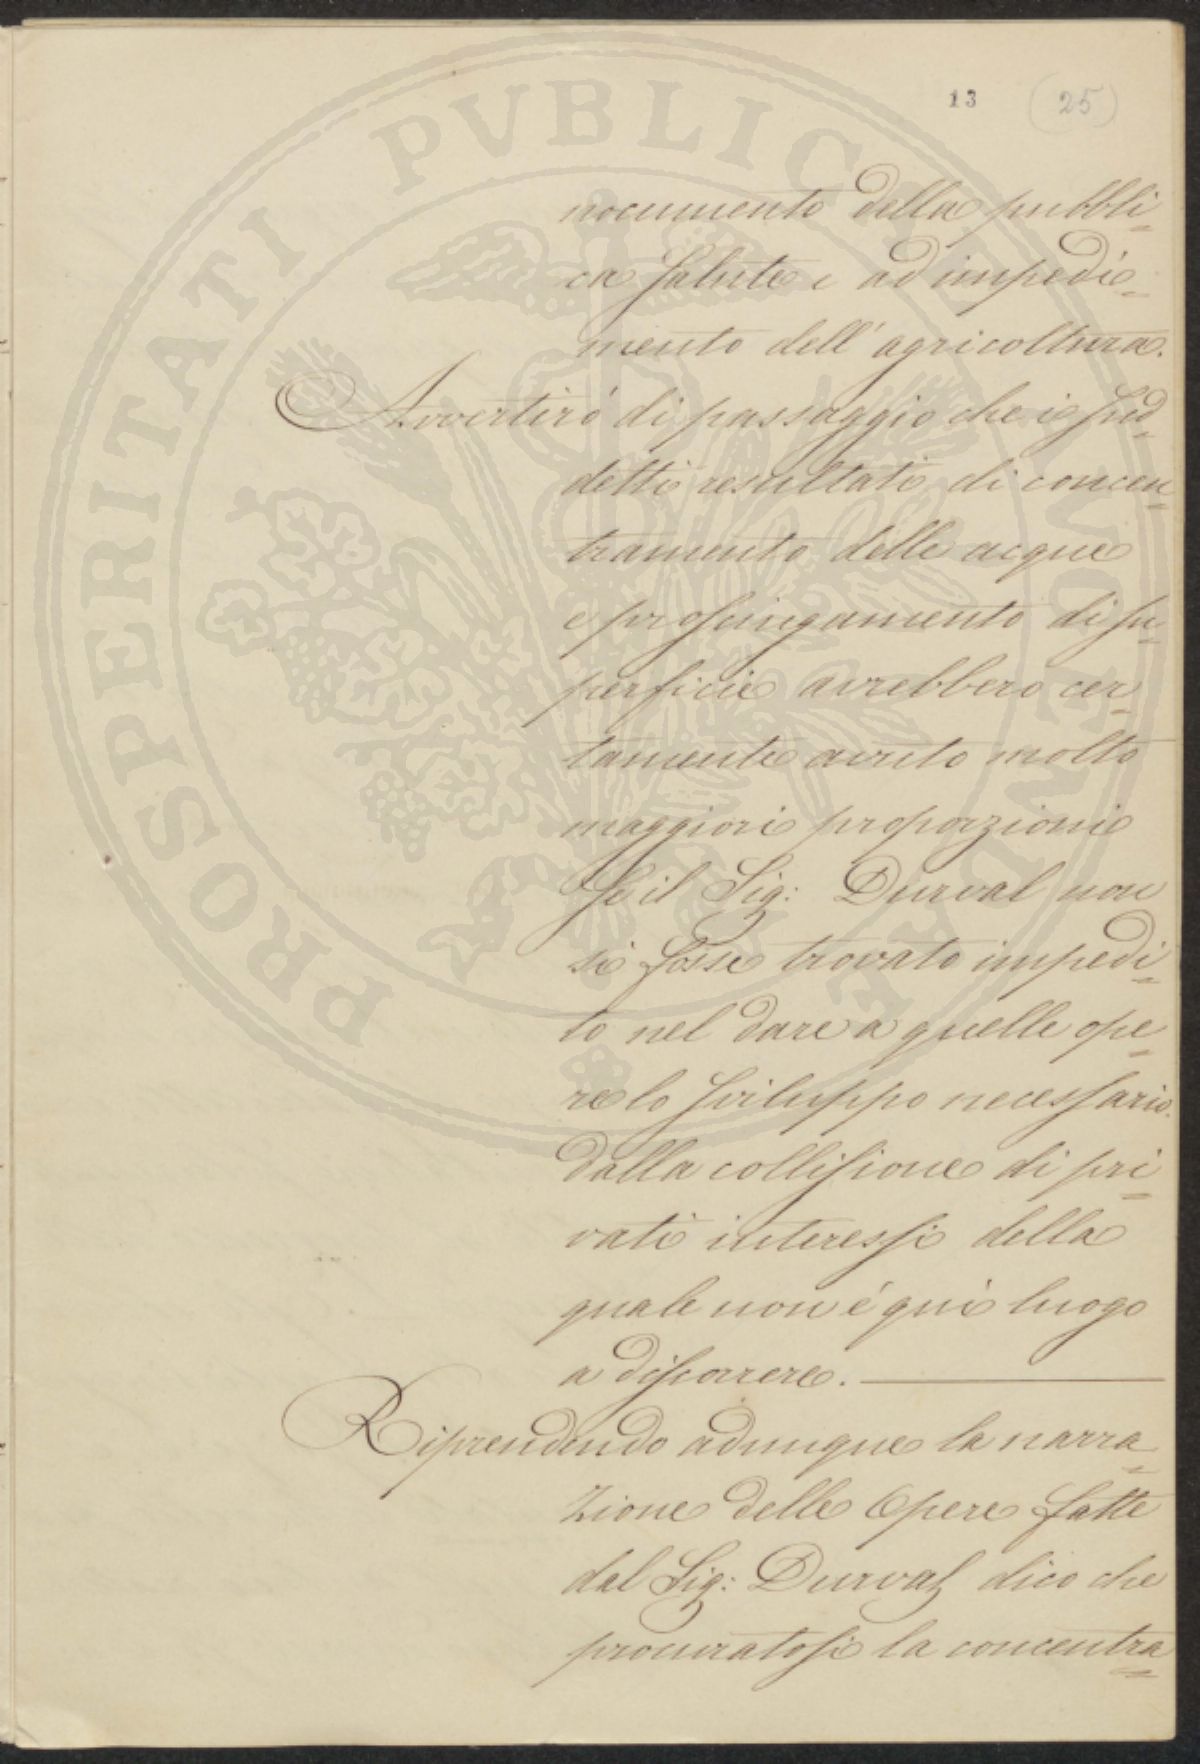 13 (25)
nocumento della pubbli=
ca salute e ad impedi=
mento dell' agricoltura.
Avvertirò di passaggio che i sud=
detti resultati di concen=
tramento delle acque
e prosciugamento di su=
perficie avrebbero cer=
tamente avuto molto
maggiori proporzioni
se il Sig: Durval non
si fosse trovato impedi=
to nel dare a quelle ope=
re lo sviluppo necessario.
dalla collisione di pri=
vati interessi della
quale non è qui luogo
a discorrere.
Riprendendo adunque la narra=
zione delle Opere fatte
dal Sig: Durval dico che
procuratosi la concentra=
PROSPERITATI PVBLICAE AVGENDAE